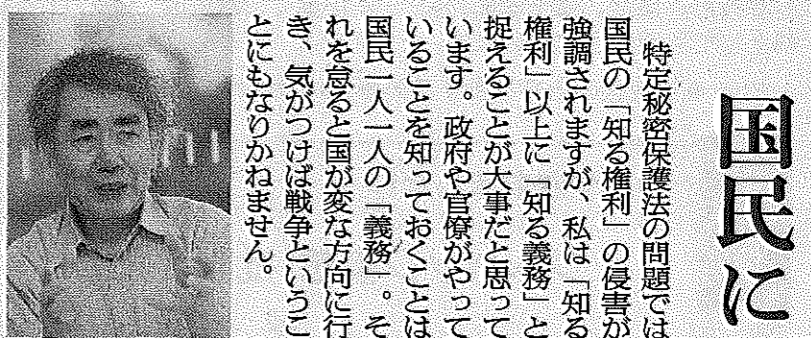 国民に
特定秘密保護法の問題では
国民の「知る権利」の侵害が
強調されますが、私は「知る
権利」以上に「知る義務」と
捉えることが大事だと思って
います。政府や官僚がやって
いることを知っておくことは
国民一人一人の「義務」。そ
れを怠ると国が変な方向に行
き、気がつけば戦争というこ
とにもなりかねません。